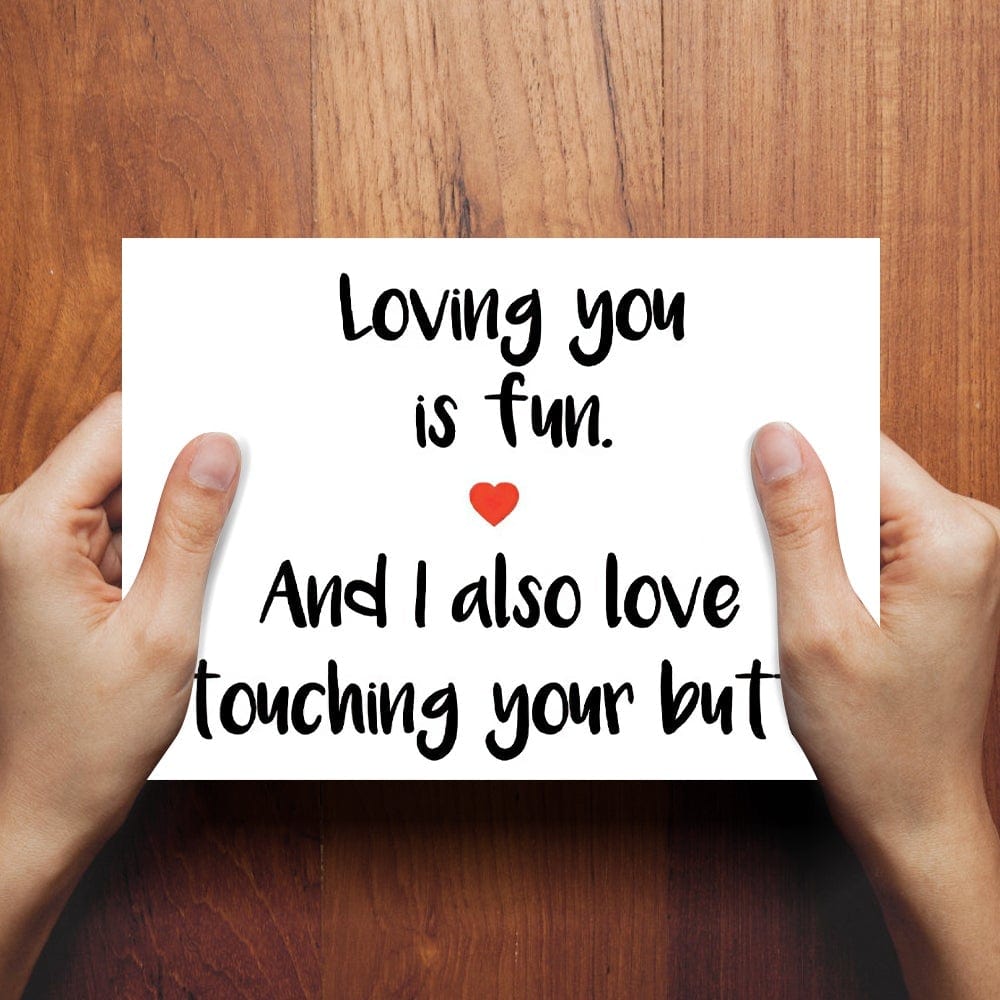 Loving you
is fun.
And I also love
touching your but